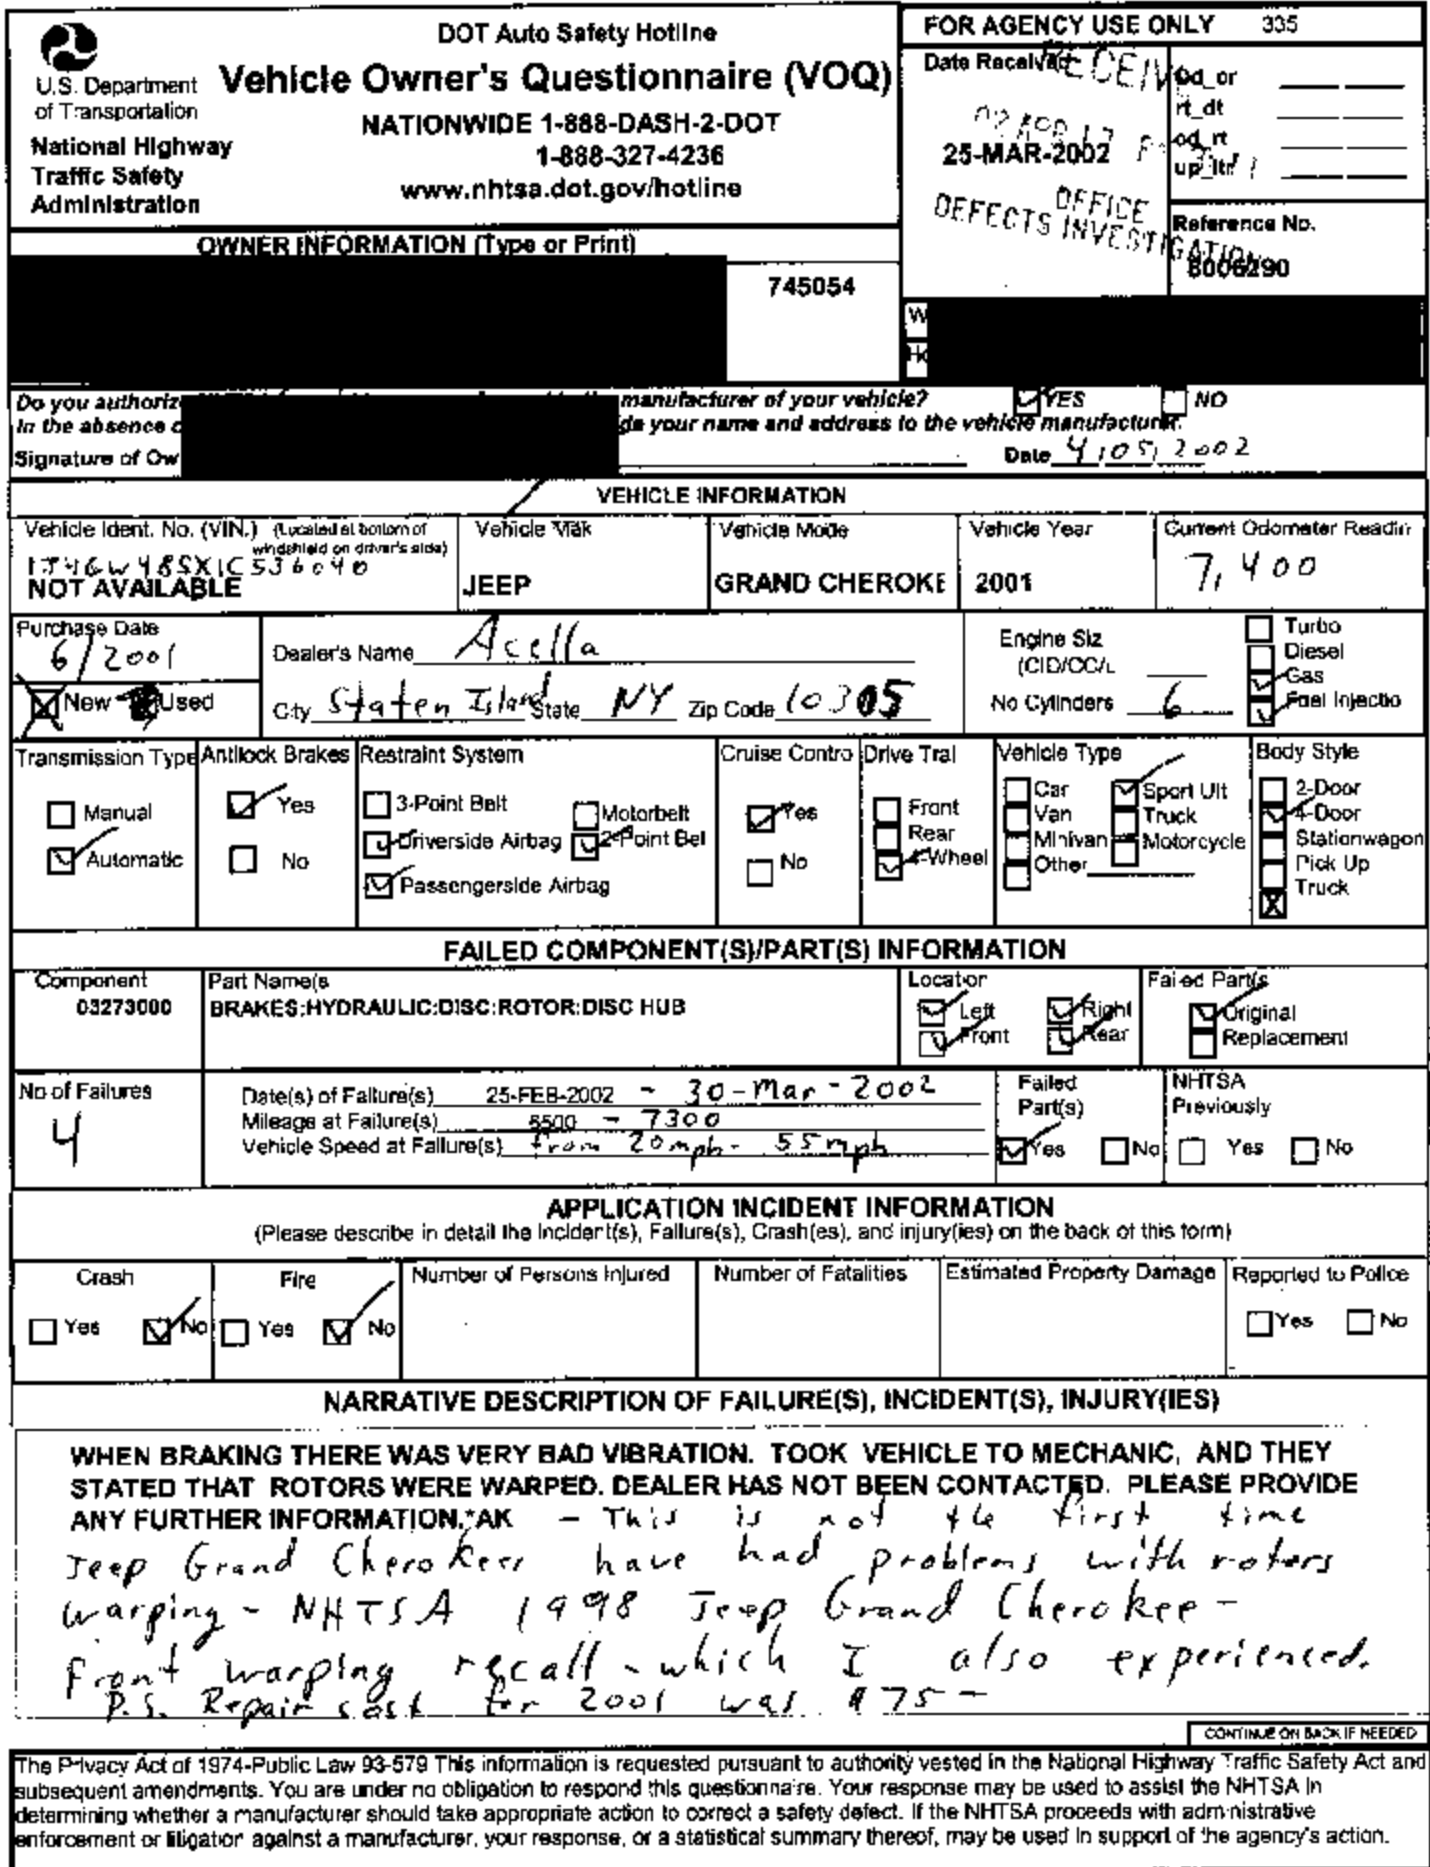 DOT Auto Safety Hotline
Vehicle Owner's Questionnaire (VOQ)
NATIONWIDE 1-888-DASH-2-DOT
1-888-327-4236
www.nhtsa.dot.gov/hotline
U.S. Department
of Transportation
National Highway
Traffic Safety
Administration
FOR AGENCY USE ONLY 335
Date Received
25-MAR-2002
OFFICE
DEFECTS INVESTIGATION
od_or
rt_dt
od_rt
up_ltr
Reference No.
8006290
OWNER INFORMATION (Type or Print)
745054
W
Ho
Do you authorize manufacturer of your vehicle? YES NO
In the absence your name and address to the vehicle manufacturer.
Signature of Ow Date 4/05/2002
VEHICLE INFORMATION
Vehicle Ident. No. (VIN.) (Located at bottom of
windshield on driver's side)
1J4GW48SX1C536040
NOT AVAILABLE
Vehicle Mak
JEEP
Vehicle Mode
GRAND CHEROKE
Vehicle Year
2001
Current Odometer Readin
7,400
Purchase Date
6/2001
New Used
Dealer's Name Acella
City Staten Island State NY Zip Code 10305
Engine Siz
(CID/CC/L
No Cylinders 6
Turbo
Diesel
Gas
Fuel Injectio
Transmission Type
Manual
Automatic
Antilock Brakes
Yes
No
Restraint System
3-Point Belt Motorbelt
Driverside Airbag 2-Point Bel
Passengerside Airbag
Cruise Contro
Yes
No
Drive Trai
Front
Rear
4-Wheel
Vehicle Type
Car Sport Ult
Van Truck
Minivan Motorcycle
Other
Body Style
2-Door
4-Door
Stationwagon
Pick Up
Truck
FAILED COMPONENT(S)/PART(S) INFORMATION
Component
03273000
Part Name(s
BRAKES:HYDRAULIC:DISC:ROTOR:DISC HUB
Location
Left Right
Front Rear
Failed Part(s
Original
Replacement
No of Failures
4
Date(s) of Failure(s) 25-FEB-2002 - 30-Mar-2002
Mileage at Failure(s) 6500 - 7300
Vehicle Speed at Failure(s) from 20mph- 55mph
Failed
Part(s)
Yes No
NHTSA
Previously
Yes No
APPLICATION INCIDENT INFORMATION
(Please describe in detail the Incident(s), Failure(s), Crash(es), and injury(ies) on the back of this form)
Crash
Yes No
Fire
Yes No
Number of Persons Injured
Number of Fatalities
Estimated Property Damage
Reported to Police
Yes No
NARRATIVE DESCRIPTION OF FAILURE(S), INCIDENT(S), INJURY(IES)
WHEN BRAKING THERE WAS VERY BAD VIBRATION. TOOK VEHICLE TO MECHANIC, AND THEY
STATED THAT ROTORS WERE WARPED. DEALER HAS NOT BEEN CONTACTED. PLEASE PROVIDE
ANY FURTHER INFORMATION.*AK - This is not the first time
Jeep Grand Cherokees have had problems with rotors
warping - NHTSA 1998 Jeep Grand Cherokee -
Front warping recall - which I also experienced.
P.S. Repair cost for 2001 was 975-
CONTINUE ON BACK IF NEEDED
The Privacy Act of 1974-Public Law 93-579 This information is requested pursuant to authority vested in the National Highway Traffic Safety Act and
subsequent amendments. You are under no obligation to respond this questionnaire. Your response may be used to assist the NHTSA in
determining whether a manufacturer should take appropriate action to correct a safety defect. If the NHTSA proceeds with administrative
enforcement or litigation against a manufacturer, your response, or a statistical summary thereof, may be used in support of the agency's action.